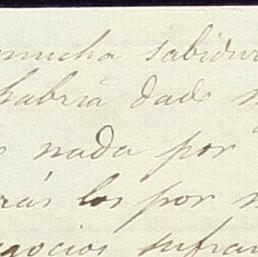 mucha sabidur
habría dado
nada por
rás los por
negocios sufran